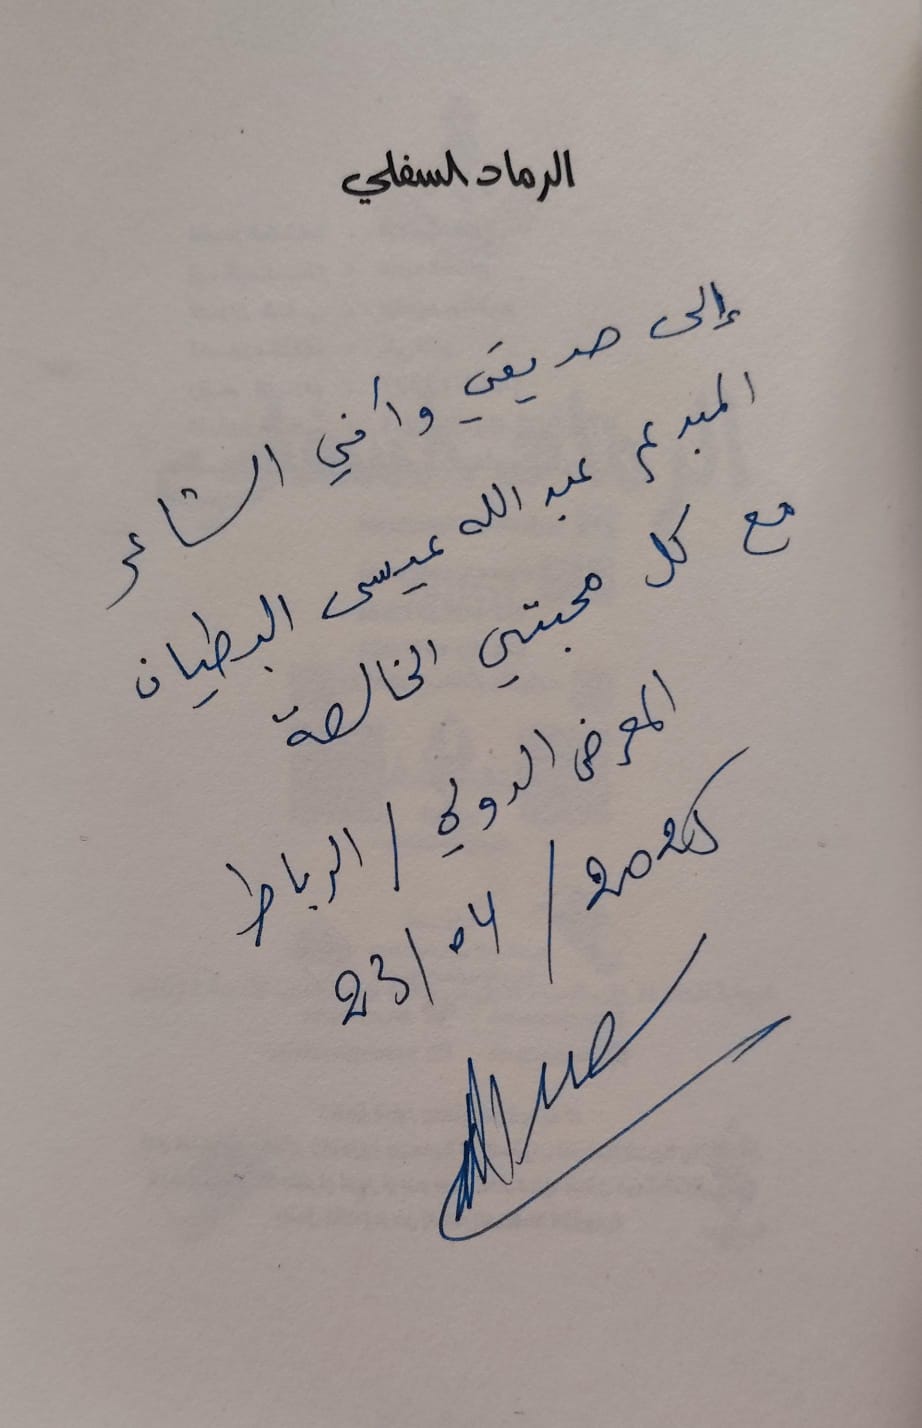 الرماد السفلي
إلى صديقي وأخي الشاعر
المبدع عبد الله عيسى البطيان
مع كل محبتي الخالصة
المعرض الدولي / الرباط
23/04/2025